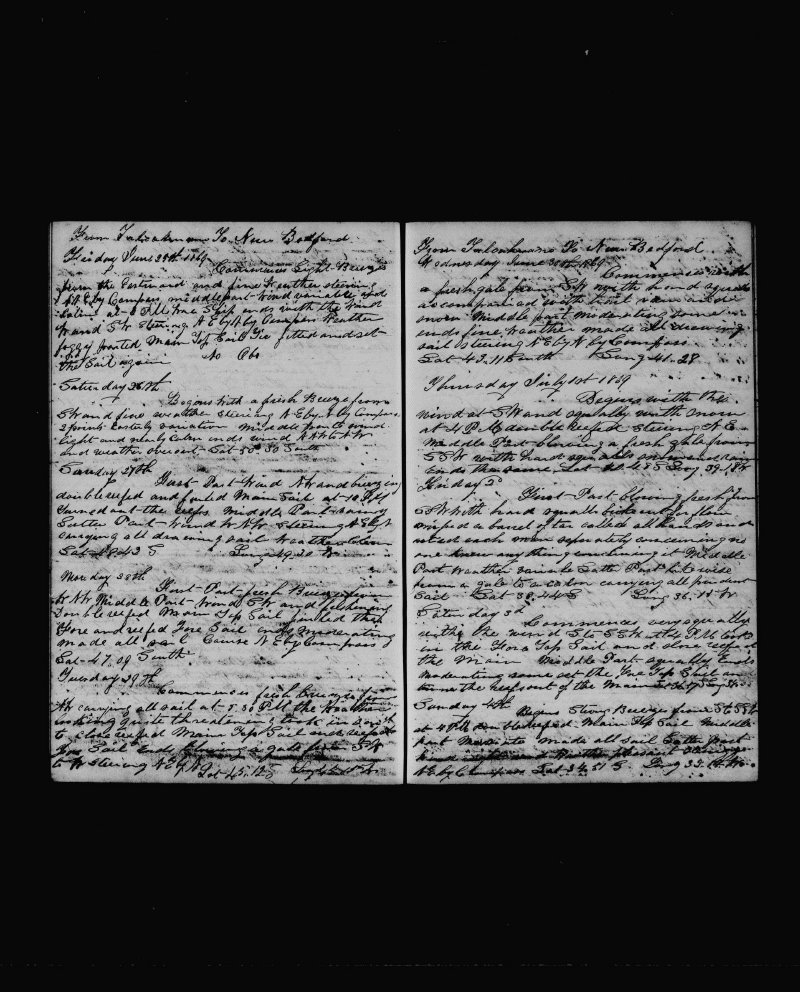 From Talcahuano To New Bedford
Friday June 25th 1869
Commences Light Breeze
from the Eastward and fine Weather steering
N E by Compass middle part Wind variable and
Calm at P M Wore Ship ends with the wind
W and S W Steering N E by N by Compass Weather
foggy Main Top Sail fitted and set
the Sail again No Obs
Saturday 26th
Begins with a fresh Breeze from
S W and fine weather steering N E by N by Compass
2 points Easterly variation middle part wind
light and nearly Calm ends wind N W
and weather overcast Lat 50 30 South
Sunday 27th
First Part Wind N W and breezing
double reefed and furled Main Sail at 10 P M
turned out the reefs Middle Part rainy
Latter Part Wind W N W Steering N E by N
carrying all drawing sail weather
Lat 48 43 S Long 49 30 W
Monday 28th
First Part fresh Breeze from
W N W Middle Part Wind S W and freshening
Double reefed Main Top Sail furled the
Fore and reefed Fore Sail ends moderating
made all sail Course N E by Compass
Lat 47 09 South
Tuesday 29th
Commences fresh Breeze from
N W carrying all sail at 5.30 P M the Weather
looking quite threatening took in sail
to close reefed Main Top Sail and reefed
Fore Sail Ends blowing a gale from S W
to W steering N E by N
Lat 45.12 S
From Talcahuano To New Bedford
Wednesday June 30th 1869
Commences with
a fresh gale from S W with hard squalls
accompanied with hail rain and
snow Middle part moderating some
ends fine weather made all drawing
sail steering N E by N by Compass
Lat 43.11 South Long 41.28
Thursday July 1st 1869
Begins with the
wind at S W and squally with snow
at 4 P M double reefed Steering N E
Middle Part blowing a fresh gale from
S S W with hard squalls snow and rain
Ends the same Lat 40.48 S Long 39.18 W
Friday 2d
First Part blowing fresh from
S W with hard squalls
a barrel of tea called all hands and
asked each man seperately concerning no
one knew any thing concerning it Middle
Part Weather variable Latter Part
from a gale to a calm carrying all prudent
Sail Lat 38.44 S Long 36.15 W
Saturday 3d
Commences very squally
with the wind S to S S W at 4 P M took
in the Fore Top Sail and close reefed
the Main Middle Part squally Ends
moderating some set the Fore Top Sail and
turn the reefs out of the Main
Sunday 4th
Begins Strong Breeze from S to S S W
at 4 P M double reefed Main Top Sail Middle
part Moderate made all sail Latter part
and Weather pleasant Steering
N E by Compass Lat 34.51 S Long 35.14 W